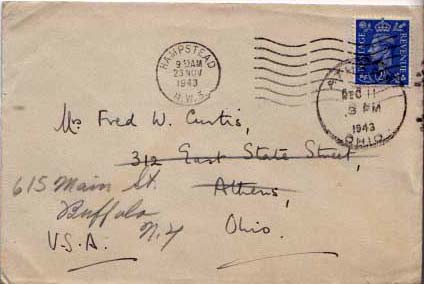 HAMPSTEAD
9 30 AM
23 NOV
1943
N.W.3.
POSTAGE
REVENUE
DEC 11
3 PM
1943
OHIO
Mr Fred W. Curtis,
312 East State Street,
Athens,
Ohio.
615 Main St.
Buffalo
N.Y
U.S.A.